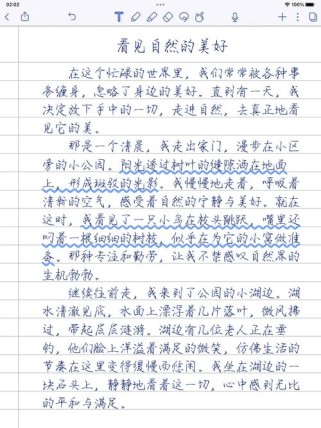 02:02
100%
看见自然的美好
在这个忙碌的世界里，我们常常被各种事
务缠身，忽略了身边的美好。直到有一天，我
决定放下手中的一切，走进自然，去真正地看
见它的美。
那是一个清晨，我走出家门，漫步在小区
旁的小公园。阳光透过树叶的缝隙洒在地面
上，形成斑驳的光影。我慢慢地走着，呼吸着
清新的空气，感受着自然的宁静与美好。就在
这时，我看见了一只小鸟在枝头跳跃，嘴里还
叼着一根细细的树枝，似乎在为它的小窝做准
备。那种专注和勤劳，让我不禁感叹自然界的
生机勃勃。
继续往前走，我来到了公园的小湖边。湖
水清澈见底，水面上漂浮着几片落叶，微风拂
过，带起层层涟漪。湖边有几位老人正在垂
钓，他们脸上洋溢着满足的微笑，仿佛生活的
节奏在这里变得缓慢而悠闲。我坐在湖边的一
块石头上，静静地看着这一切，心中感到无比
的平和与满足。